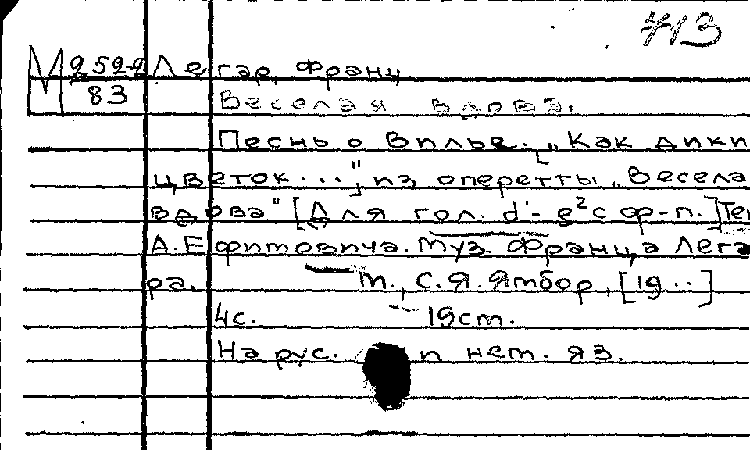 713
М 9522 Легар, Франц
83 Веселая вдова.
Песнь о Вилье. „Как дики
цветок...", из оперетты „Весела
вдова" [Для гол. d'- g² с ф-п.] Тек
А. Е Фитовича. Муз. Франца Лега
ра. М., С. Я. Ямбор, [19..]
4с. 19см.
На рус. и нем. яз.